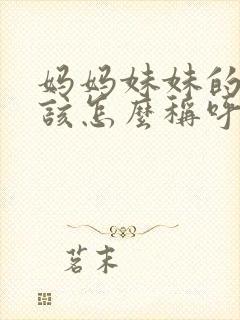 妈妈妹妹的
该怎麽稱呼
茗末